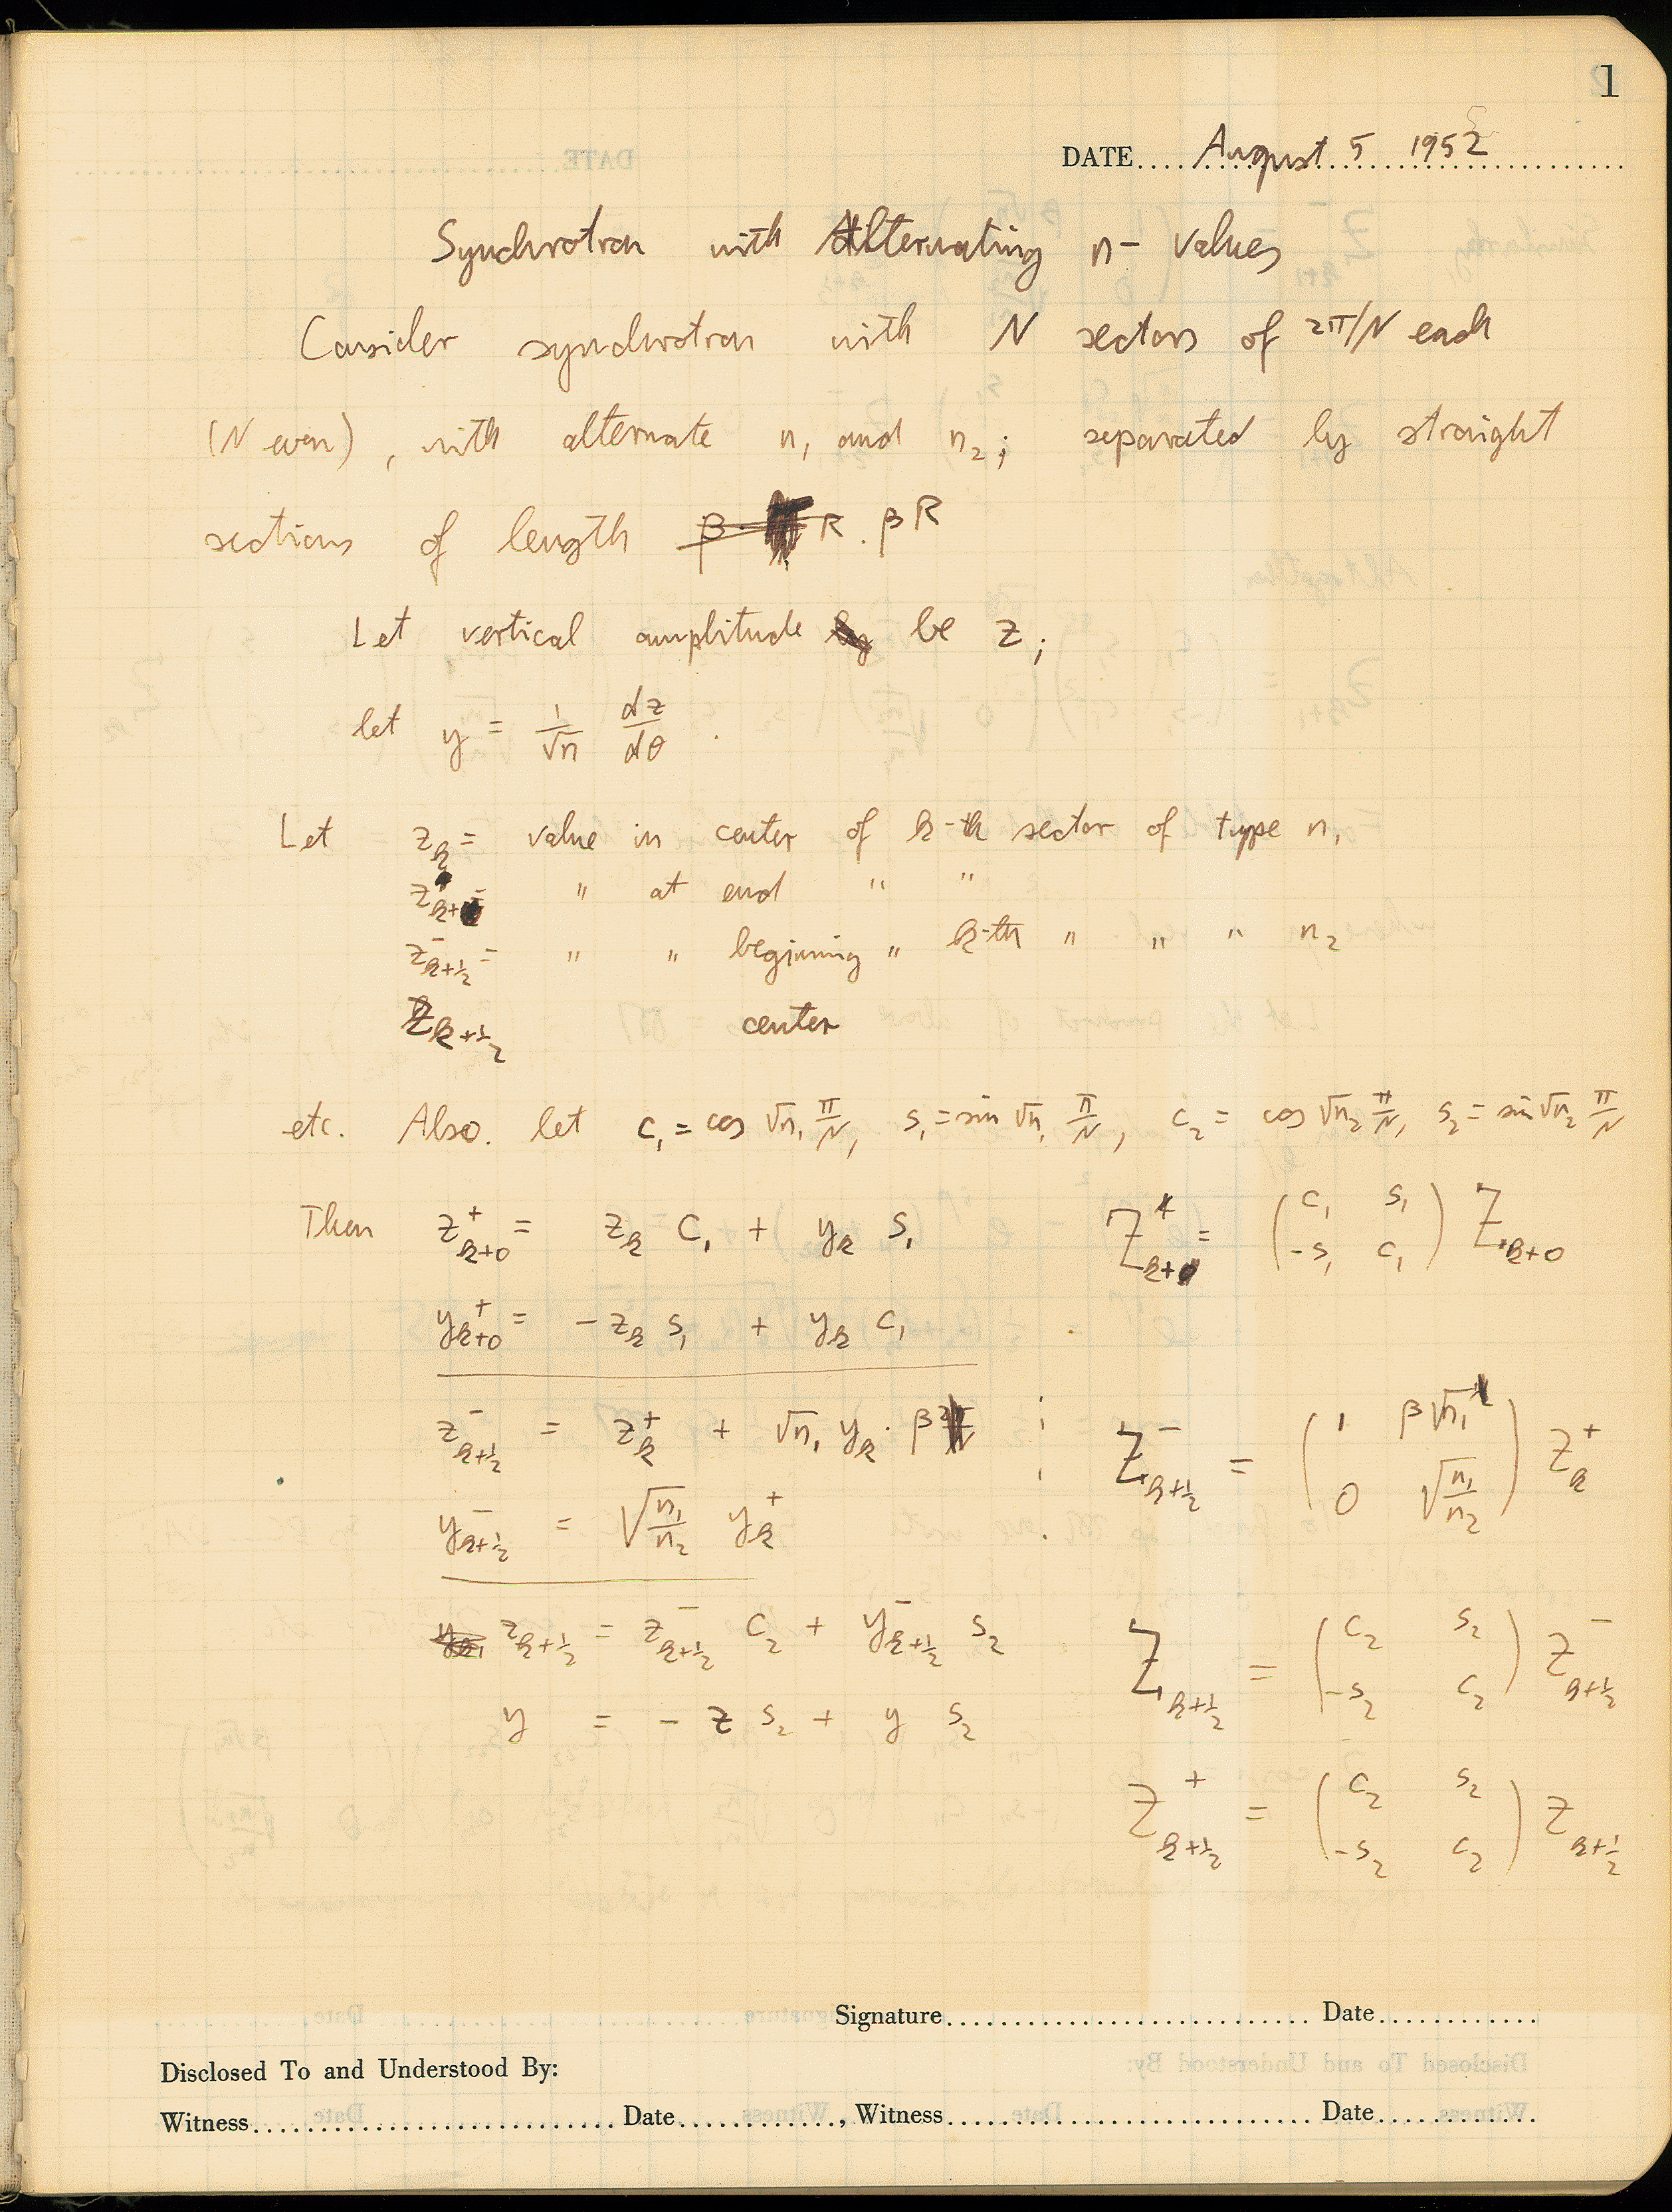 1
DATE.... August 5 1952
Synchrotron with Alternating n- values
Consider synchrotron with N sectors of 2π/N each
(N even), with alternate n₁ and n₂; separated by straight
sections of length β· R. βR
Let vertical amplitude be z;
let y = 1/√n dz/dθ.
Let z_k = value in center of k-th sector of type n₁
z⁺_k+0 = " at end " "
z⁻_k+½ = " " beginning " k-th " " " n₂
z_k+½ center
etc. Also. let c₁ = cos √n₁ π/N, s₁ = sin √n₁ π/N, c₂ = cos √n₂ π/N, s₂ = sin √n₂ π/N
Then z⁺_k+0 = z_k c₁ + y_k s₁ Z⁺_k+0 = (c₁ s₁ / -s₁ c₁) Z_k+0
y⁺_k+0 = -z_k s₁ + y_k c₁
z⁻_k+½ = z⁺_k + √n₁ y_k · β ; Z⁻_k+½ = (1 β√n₁ / 0 √(n₁/n₂)) Z⁺_k
y⁻_k+½ = √(n₁/n₂) y⁺_k
z_k+½ = z⁻_k+½ c₂ + y⁻_k+½ s₂ Z_k+½ = (c₂ s₂ / -s₂ c₂) Z⁻_k+½
y = - z s₂ + y s₂
Z⁺_k+½ = (c₂ s₂ / -s₂ c₂) Z_k+½
Signature........................... Date............
Disclosed To and Understood By:
Witness........................... Date............, Witness........................... Date............